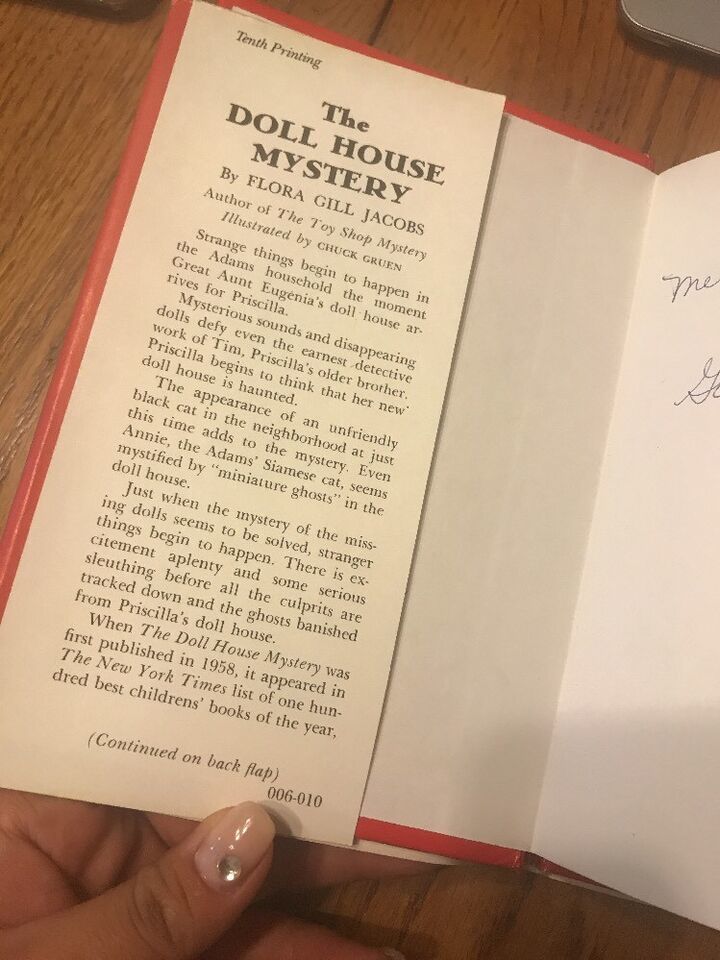 Tenth Printing
The
DOLL HOUSE
MYSTERY
By FLORA GILL JACOBS
Author of The Toy Shop Mystery
Illustrated by CHUCK GRUEN
Strange things begin to happen in
the Adams household the moment
Great Aunt Eugenia's doll house ar-
rives for Priscilla.
Mysterious sounds and disappearing
dolls defy even the earnest detective
work of Tim, Priscilla's older brother.
Priscilla begins to think that her new
doll house is haunted.
The appearance of an unfriendly
black cat in the neighborhood at just
this time adds to the mystery. Even
Annie, the Adams' Siamese cat, seems
mystified by "miniature ghosts" in the
doll house.
Just when the mystery of the miss-
ing dolls seems to be solved, stranger
things begin to happen. There is ex-
citement aplenty and some serious
sleuthing before all the culprits are
tracked down and the ghosts banished
from Priscilla's doll house.
When The Doll House Mystery was
first published in 1958, it appeared in
The New York Times list of one hun-
dred best childrens' books of the year,
(Continued on back flap)
006-010